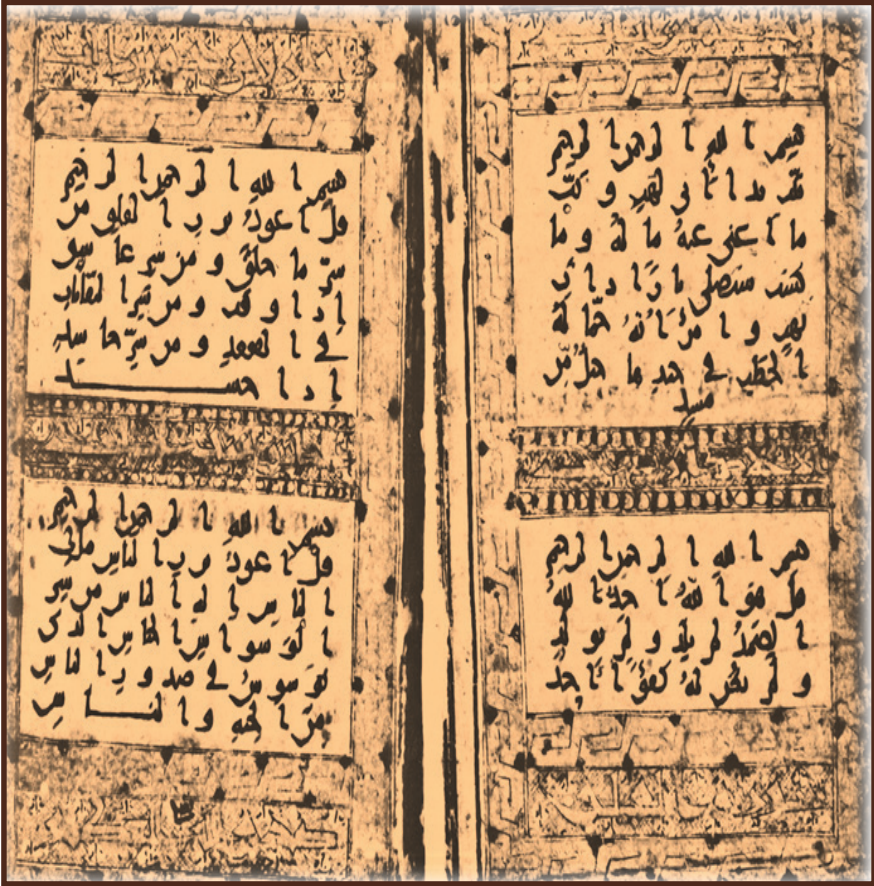 بسم الله الرحمن الرحيم
تبت يدا أبي لهب وتب
ما أغنى عنه ماله وما
كسب سيصلى نارا ذات
لهب وامرأته حمالة
الحطب في جيدها حبل من
مسد
بسم الله الرحمن الرحيم
قل هو الله أحد الله
الصمد لم يلد ولم يولد
ولم يكن له كفوا أحد
بسم الله الرحمن الرحيم
قل أعوذ برب الفلق من
شر ما خلق ومن شر غاسق
إذا وقب ومن شر النفاثات
في العقد ومن شر حاسد
إذا حسد
بسم الله الرحمن الرحيم
قل أعوذ برب الناس ملك
الناس إله الناس من شر
الوسواس الخناس الذي
يوسوس في صدور الناس
من الجنة والناس